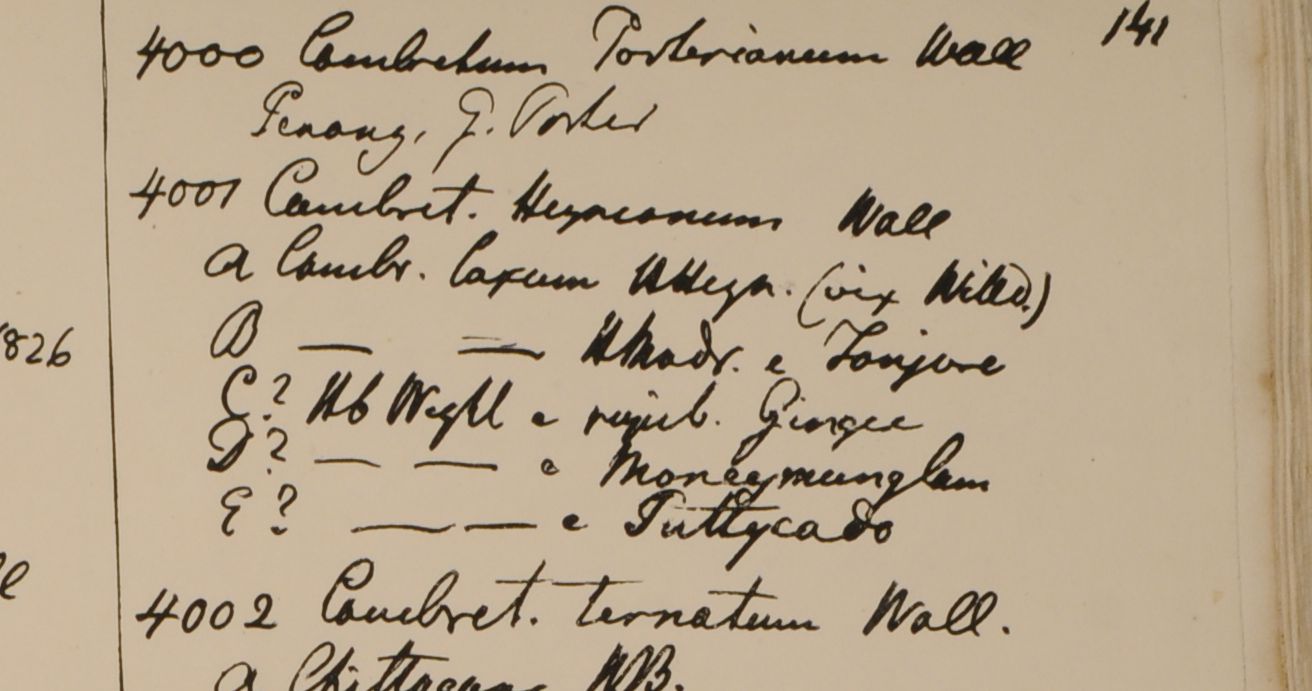 141
4000 Combretum Porterianum Wall
Penang, G. Porter
4001 Combret. Heyneanum Wall
a Combr. laxum HHeyn. (vix Willd.)
B — — HMadr. e Tanjore
C? Hb Wight e Ginge
D? — — e Moneymunglum
E? — — e Tuttycado
826
4002 Combret. ternatum Wall.
a Chittagong HB.